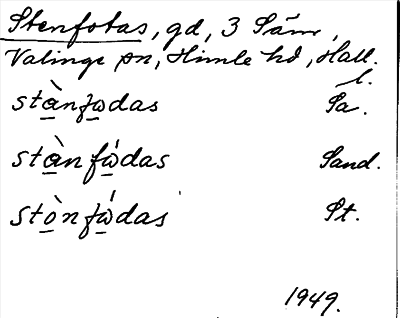 Stenfotas, gd, 3 Säm,
Valinge sn, Himle hd, Hall. l.
stànfωdas Sa.
stànfώdas Sand.
stònfώdas St.
1949.